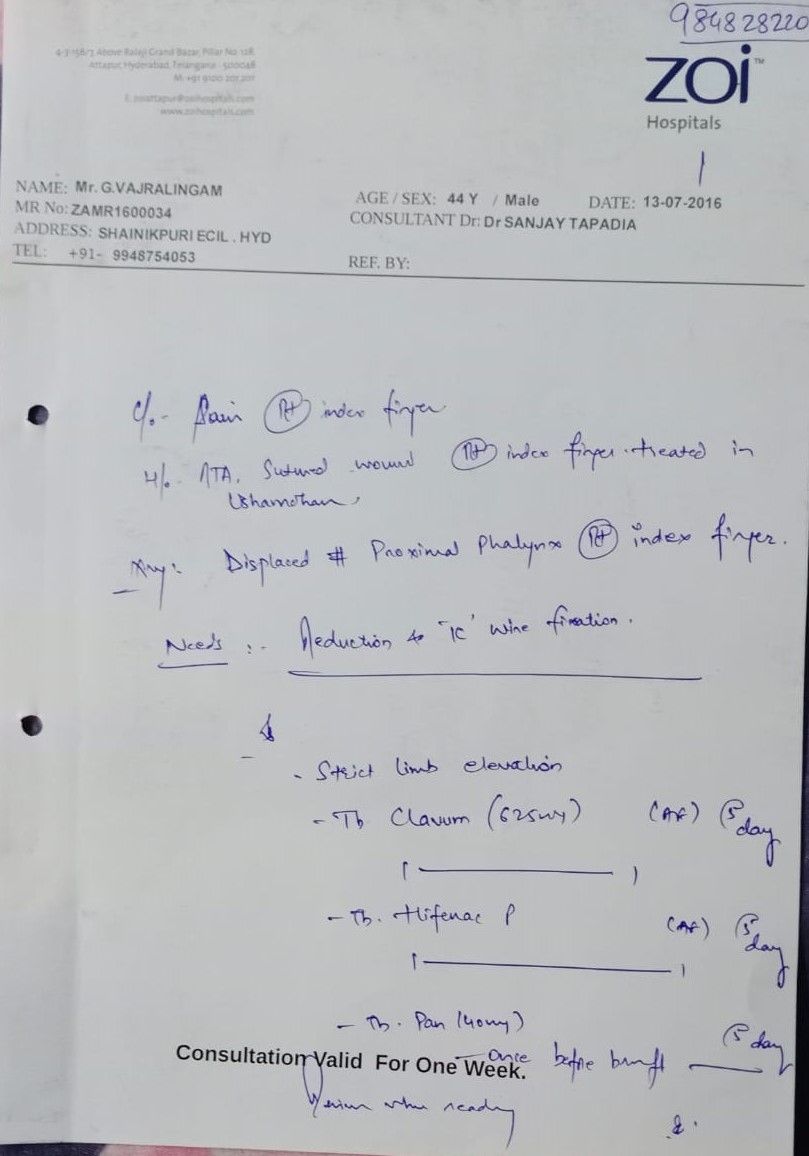 984828220
4-7-156/7, Above Balaji Grand Bazar, Pillar No. 128,
Attapur, Hyderabad, Telangana - 500048
M: +91 9100 201 201
E: zoiattapur@zoihospitals.com
www.zoihospitals.com
ZOI™
Hospitals
1
NAME: Mr. G.VAJRALINGAM
MR No: ZAMR1600034
ADDRESS: SHAINIKPURI ECIL . HYD
TEL: +91- 9948754053
AGE / SEX: 44 Y / Male DATE: 13-07-2016
CONSULTANT Dr: Dr SANJAY TAPADIA
REF. BY:
c/o - Pain (Rt) index finger
H/o - RTA, Sutured wound (Rt) index finger treated in
Ushamohan,
Xray: Displaced # Proximal Phalynx (Rt) index finger.
Needs :- Reduction & 'K' wire fixation.
- Strict limb elevation
- Tb Clavum (625mg) (AF) 5 day
1 ——— 1
- Tb. Hifenac P (AF) 5 day
1 ——— 1
- Tb. Pan (40mg) 5 day
Once before
Consultation Valid For One Week.
Review when ready